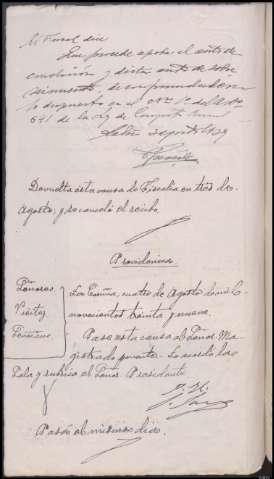 El Fiscal dice
Que procede aprobar el auto de
conclusión y dictar auto de sobre
seimiento, de conformidad con
lo dispuesto en el nº 1º del art
641 de la Ley de Enjuiciamiento Criminal
agosto 1939
Devuelta esta causa de Fiscalía en tres de
Agosto, y se canceló el recibo.
Providencia
Señores
La Coruña, cuatro de Agosto de mil
novecientos treinta y nueve.
Pase esta causa al Señor Ma-
gistrado ponente. Lo acordó la
Sala y rubrica el Señor Presidente
Pasó al mismo día.